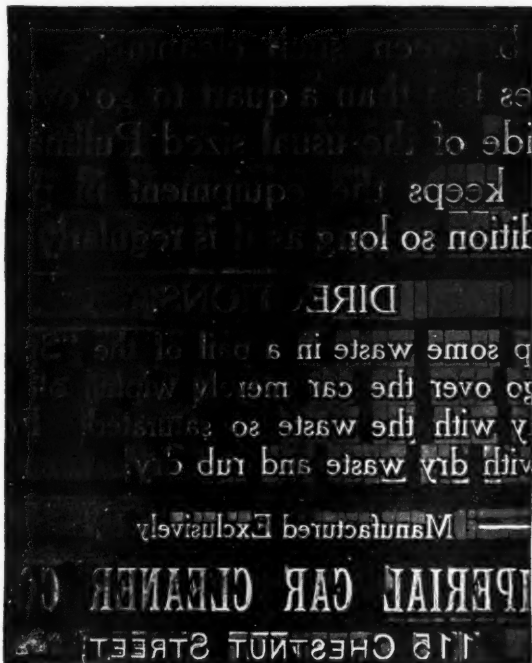 between such cleaning
es less than a quart to go ove
ide of the usual sized Pullma
keeps the equipment in
dition so long as it is regularly
DIRECTIONS
p some waste in a pail of the "S
go over the car merely wiping
y with the waste so saturated
with dry waste and rub dry.
Manufactured Exclusively
PERIAL CAR CLEANER CO
115 CHESTNUT STREET